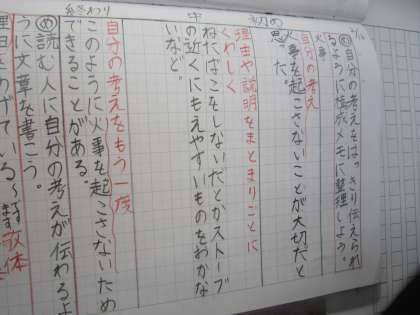 め自分の考えをはっきり伝えられ
るように構成メモに整理しよう。
火事
初め
自分の考え
火事を起こさないことが大切だと
思った。
中
理由や説明をまとまりごとに
くわしく
ねたばこをしないだとかストーブ
の近くにもえやすいものをおかな
いなど。
終わり
自分の考えをもう一度
このように火事を起こさないため
できることがある。
め読む人に自分の考えが伝わるよ
うに文章を書こう。
理由をあげている〜
敬体